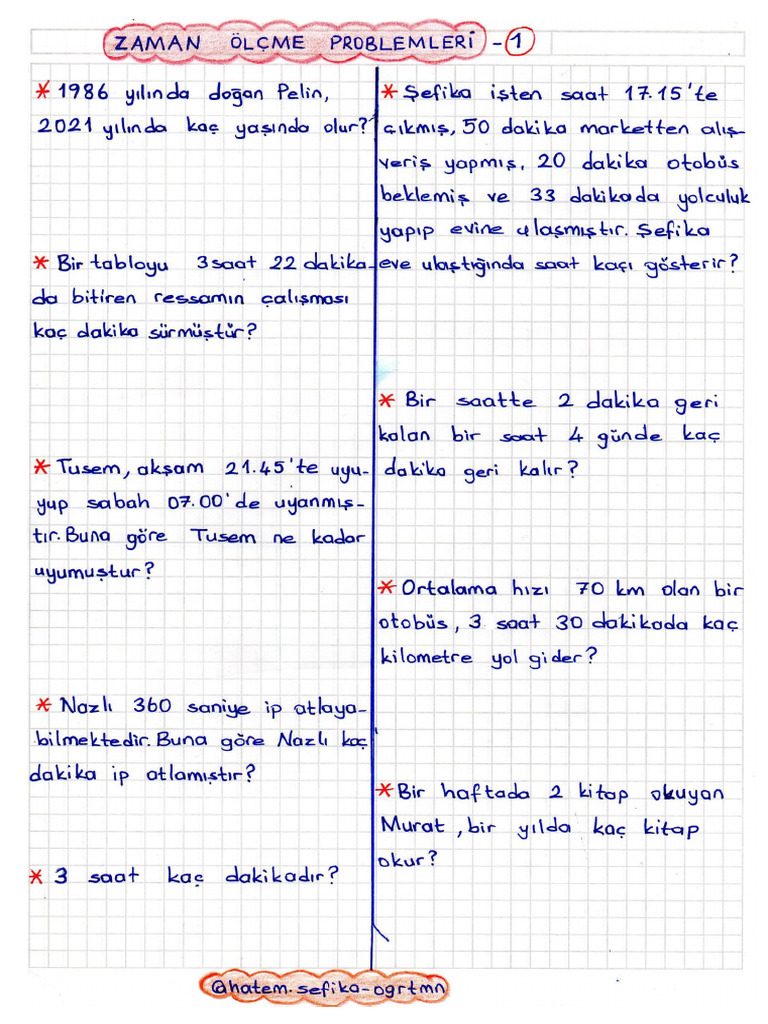 ZAMAN ÖLÇME PROBLEMLERİ - 1
* 1986 yılında doğan Pelin,
2021 yılında kaç yaşında olur?
* Bir tabloyu 3 saat 22 dakika-
da bitiren ressamın çalışması
kaç dakika sürmüştür?
* Tusem, akşam 21.45'te uyu-
yup sabah 07.00'de uyanmış-
tır. Buna göre Tusem ne kadar
uyumuştur?
* Nazlı 360 saniye ip atlaya-
bilmektedir. Buna göre Nazlı kaç
dakika ip atlamıştır?
* 3 saat kaç dakikadır?
* Şefika işten saat 17.15'te
çıkmış, 50 dakika marketten alış-
veriş yapmış, 20 dakika otobüs
beklemiş ve 33 dakikada yolculuk
yapıp evine ulaşmıştır. Şefika
eve ulaştığında saat kaçı gösterir?
* Bir saatte 2 dakika geri
kalan bir saat 4 günde kaç
dakika geri kalır?
* Ortalama hızı 70 km olan bir
otobüs, 3 saat 30 dakikada kaç
kilometre yol gider?
* Bir haftada 2 kitap okuyan
Murat, bir yılda kaç kitap
okur?
@hatem.sefika-ogrtmn